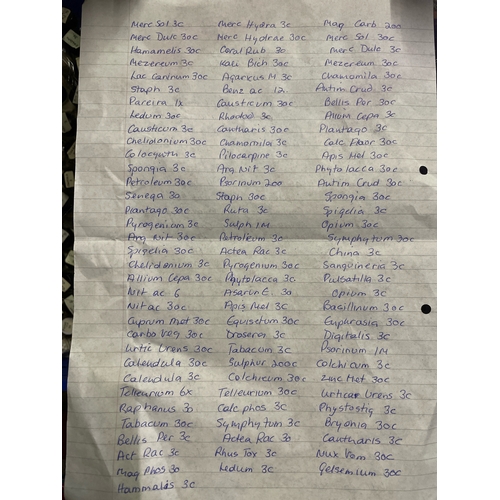 Merc Sol 3c Merc Hydra 3c Mag Carb 200
Merc Dulc 30c Merc Hydrae 30c Merc Sol 30c
Hamamelis 30c Coral Rub 30 Merc Dulc 3c
Mezereum 3c Kali Bich 30c Mezereum 30c
Lac Caninum 30c Agaricus M 3c Chamomila 30c
Staph 3c Benz ac 12 Antim Crud 3c
Pareira 1x Causticum 30c Bellis Per 30c
Ledum 30c Rhodod 3c Allium Cepa 3c
Causticum 3c Cantharis 30c Plantago 3c
Chelidonium 30c Chamamila 3c Calc Floor 30c
Colocynth 3c Pilocarpine 3c Apis Mel 30c
Spongia 3c Arg Nit 3c Phytolacca 30c
Petroleum 30c Psorinum 200 Antim Crud 30c
Senega 30 Staph 30c Spongia 30c
Plantago 30c Ruta 3c Spigelia 3c
Pyrogenium 3c Sulph 1M Opium 30c
Arg Nit 30c Petroleum 30 Symphytum 30c
Spigelia 30c Actea Rac 3c China 3c
Chelidonium 3c Pyrogenium 30c Sanguineria 3c
Allium Cepa 30c Phytolacca 3c Pulsatilla 3c
Nit ac 6 Asarum E. 30 Opium 3c
Nit ac 30c Apis Mel 3c Basillinum 30c
Cuprum Met 30c Equisetum 30c Euphrasia 30c
Carbo Veg 30c Drosera 3c Digitalis 3c
Urtic Urens 30c Tabacum 3c Psorinum 1M
Calendula 30c Sulphur 200c Colchicum 3c
Calendula 3c Colchicum 30c Zinc Met 30c
Tellurium 6x Tellurium 30c Urticar Urens 3c
Raphanus 30 Calc phos 3c Physostig 3c
Tabacum 30c Symphytum 3c Bryonia 30c
Belles Per 3c Actea Rac 30 Cantharis 3c
Act Rac 3c Rhus Tox 3c Nux Vom 30c
Mag Phos 30 Ledum 3c Gelsemium 30c
Hammalds 3c